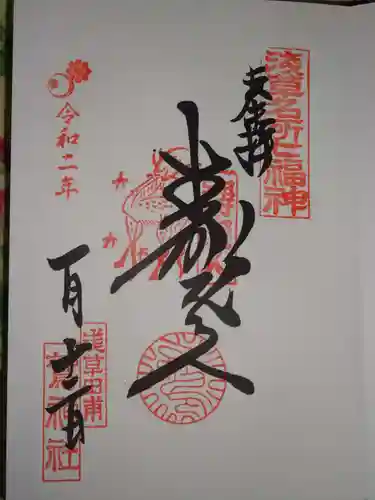 浅草名所七福神
奉拝
壽老人
令和二年
一月十二日
浅草田甫
鷲神社